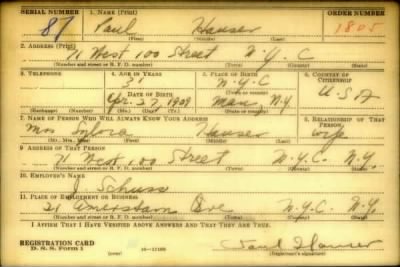 SERIAL NUMBER 1. NAME (Print) ORDER NUMBER
87 Paul Hauser 1805
(First) (Middle) (Last)
2. ADDRESS (Print)
71 West 100 Street N.Y.C
(Number and street or R. F. D. number) (Town) (County) (State)
3. TELEPHONE 4. AGE IN YEARS 5. PLACE OF BIRTH 6. COUNTRY OF CITIZENSHIP
31 N.Y.C
DATE OF BIRTH (Town or county)
Apr. 27, 1909 Man. N.Y. U.S.A
(Exchange) (Number) (Mo.) (Day) (Yr.) (State or country)
7. NAME OF PERSON WHO WILL ALWAYS KNOW YOUR ADDRESS 8. RELATIONSHIP OF THAT PERSON
Mrs Sylvia Hauser wife
(Mr., Mrs., Miss) (First) (Middle) (Last)
9. ADDRESS OF THAT PERSON
71 West 100 Street N.Y.C. N.Y.
(Number and street or R. F. D. number) (Town) (County) (State)
10. EMPLOYER'S NAME
J. Schuss
11. PLACE OF EMPLOYMENT OR BUSINESS
Amsterdam Ave N.Y.C. N.Y.
(Number and street or R. F. D. number) (Town) (County) (State)
I AFFIRM THAT I HAVE VERIFIED ABOVE ANSWERS AND THAT THEY ARE TRUE.
REGISTRATION CARD Paul Hauser
D. S. S. Form 1 (over) (Registrant's signature)